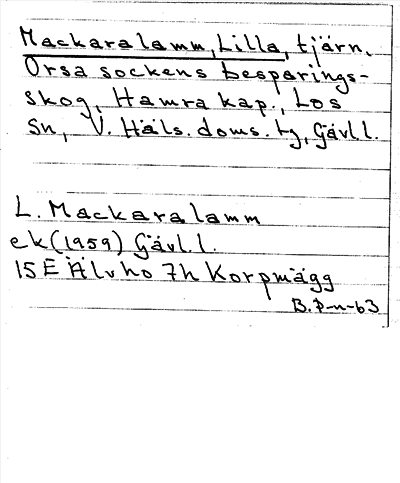 Mackaralamm, Lilla, tjärn,
Orsa sockens besparings-
skog, Hamra kap., Los
sn, V. Häls. doms. tg, Gävl.l.
L. Mackaralamm
ek (1959) Gävl.l.
15E Älvho 7h Korpmägg
B. P-n-63